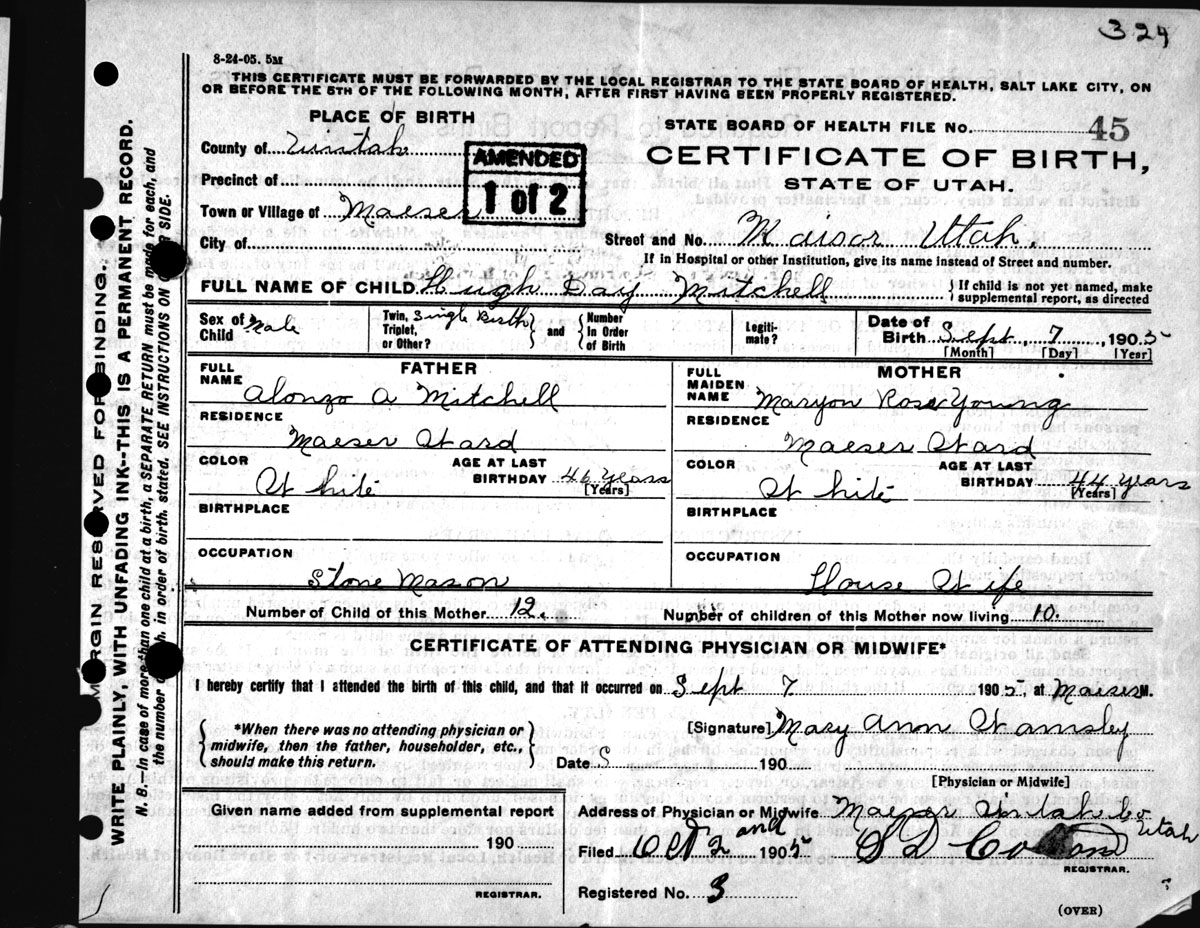 324
8-24-05. 5M
THIS CERTIFICATE MUST BE FORWARDED BY THE LOCAL REGISTRAR TO THE STATE BOARD OF HEALTH, SALT LAKE CITY, ON
OR BEFORE THE 5TH OF THE FOLLOWING MONTH, AFTER FIRST HAVING BEEN PROPERLY REGISTERED.
PLACE OF BIRTH
STATE BOARD OF HEALTH FILE No. 45
County of Uintah
CERTIFICATE OF BIRTH,
STATE OF UTAH.
AMENDED
1 of 2
Precinct of
Town or Village of Maeser
City of
Street and No. Utah.
If in Hospital or other Institution, give its name instead of Street and number.
FULL NAME OF CHILD Hugh Day Mitchell
If child is not yet named, make
supplemental report, as directed
Sex of Child Male
Twin, Triplet, or Other? Single Birth
and
Number In Order of Birth
Legiti-mate?
Date of Birth Sept 7, 1905
[Month] [Day] [Year]
FATHER
FULL NAME Alonzo A Mitchell
RESIDENCE
Maeser Ward
COLOR White
AGE AT LAST BIRTHDAY 46 years
[Years]
BIRTHPLACE
OCCUPATION
Stone Mason
MOTHER
FULL MAIDEN NAME Maryon Rose Young
RESIDENCE
Maeser Ward
COLOR White
AGE AT LAST BIRTHDAY 44 years
[Years]
BIRTHPLACE
OCCUPATION
House Wife
Number of Child of this Mother 12.
Number of children of this Mother now living 10.
CERTIFICATE OF ATTENDING PHYSICIAN OR MIDWIFE*
I hereby certify that I attended the birth of this child, and that it occurred on Sept 7 1905, at Maeser M.
*When there was no attending physician or
midwife, then the father, householder, etc.,
should make this return.
[Signature] Mary Ann Wamsley
Date S 190
[Physician or Midwife]
Given name added from supplemental report
190
REGISTRAR.
Address of Physician or Midwife Maeser Uintah Co Utah
Filed Oct 2 and 1905 S D
REGISTRAR.
Registered No. 3
(OVER)
MARGIN RESERVED FOR BINDING.
WRITE PLAINLY, WITH UNFADING INK--THIS IS A PERMANENT RECORD.
N. B.—In case of more than one child at a birth, a SEPARATE RETURN must be made for each, and
the number of each, in order of birth, stated. SEE INSTRUCTIONS ON OTHER SIDE.